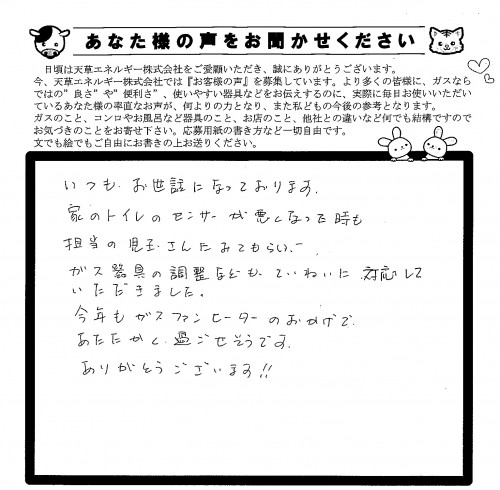 あなた様の声をお聞かせください
日頃は天草エネルギー株式会社をご愛顧いただき、誠にありがとうございます。
今、天草エネルギー株式会社では『お客様の声』を募集しています。より多くの皆様に、ガスなら
ではの”良さ”や”便利さ”、使いやすい器具などをお伝えするのに、実際に毎日お使いいただい
ているあなた様の率直なお声が、何よりの力となり、また私どもの今後の参考となります。
ガスのこと、コンロやお風呂など器具のこと、お店のこと、他社との違いなど何でも結構ですので
お気づきのことをお寄せ下さい。応募用紙の書き方など一切自由です。
文でも絵でもご自由にお書きの上お送りください。
いつも、お世話になっております。
家のトイレのセンサーが悪くなった時も
担当の児玉さんにみてもらい、
ガス器具の調整なども、ていねいに対応して
いただきました。
今年もガスファンヒーターのおかげで、
あたたかく過ごせそうです。
ありがとうございます!!